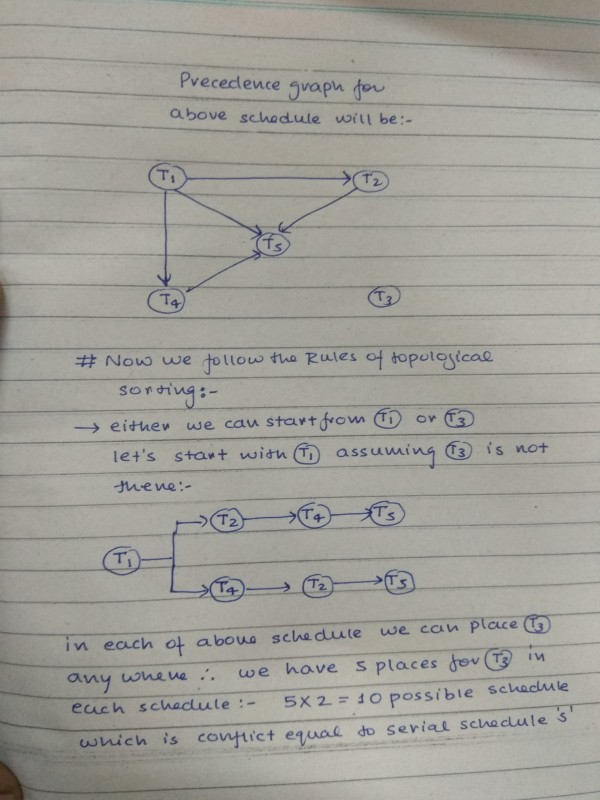 Precedence graph for
above schedule will be:-
T1
T2
T5
T4
T3
# Now we follow the Rules of topological
sorting:-
→ either we can start from T1 or T3
let's start with T1 assuming T3 is not
there:-
T2 → T4 → T5
T1
T4 → T2 → T5
in each of above schedule we can place T3
any where ∴ we have 5 places for T3 in
each schedule:- 5X2 = 10 possible schedule
which is conflict equal to serial schedule 's'